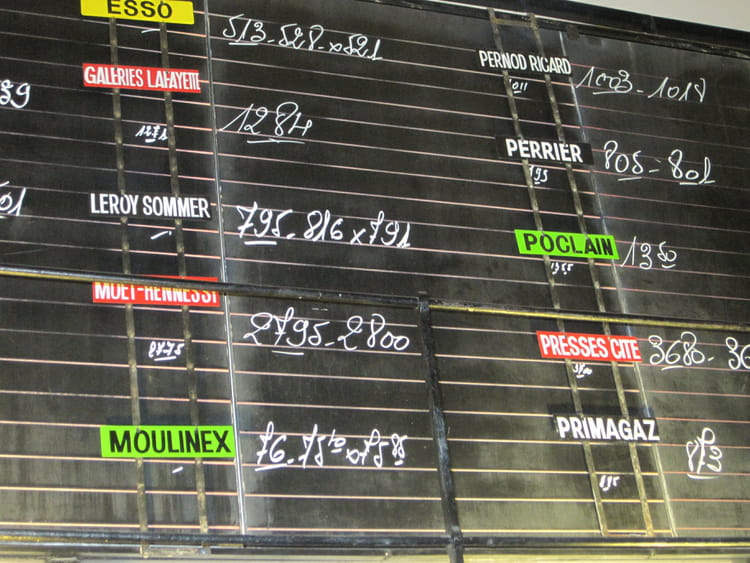 ESSO
513-528-x521
GALERIES LAFAYETTE
1284
LEROY SOMMER
795-816 x 791
MOËT-HENNESSY
2795-2800
MOULINEX
PERNOD RICARD
1003-1017
PERRIER
195
805-801
POCLAIN
1350
1355
PRESSES CITE
3680-36
PRIMAGAZ
873
895